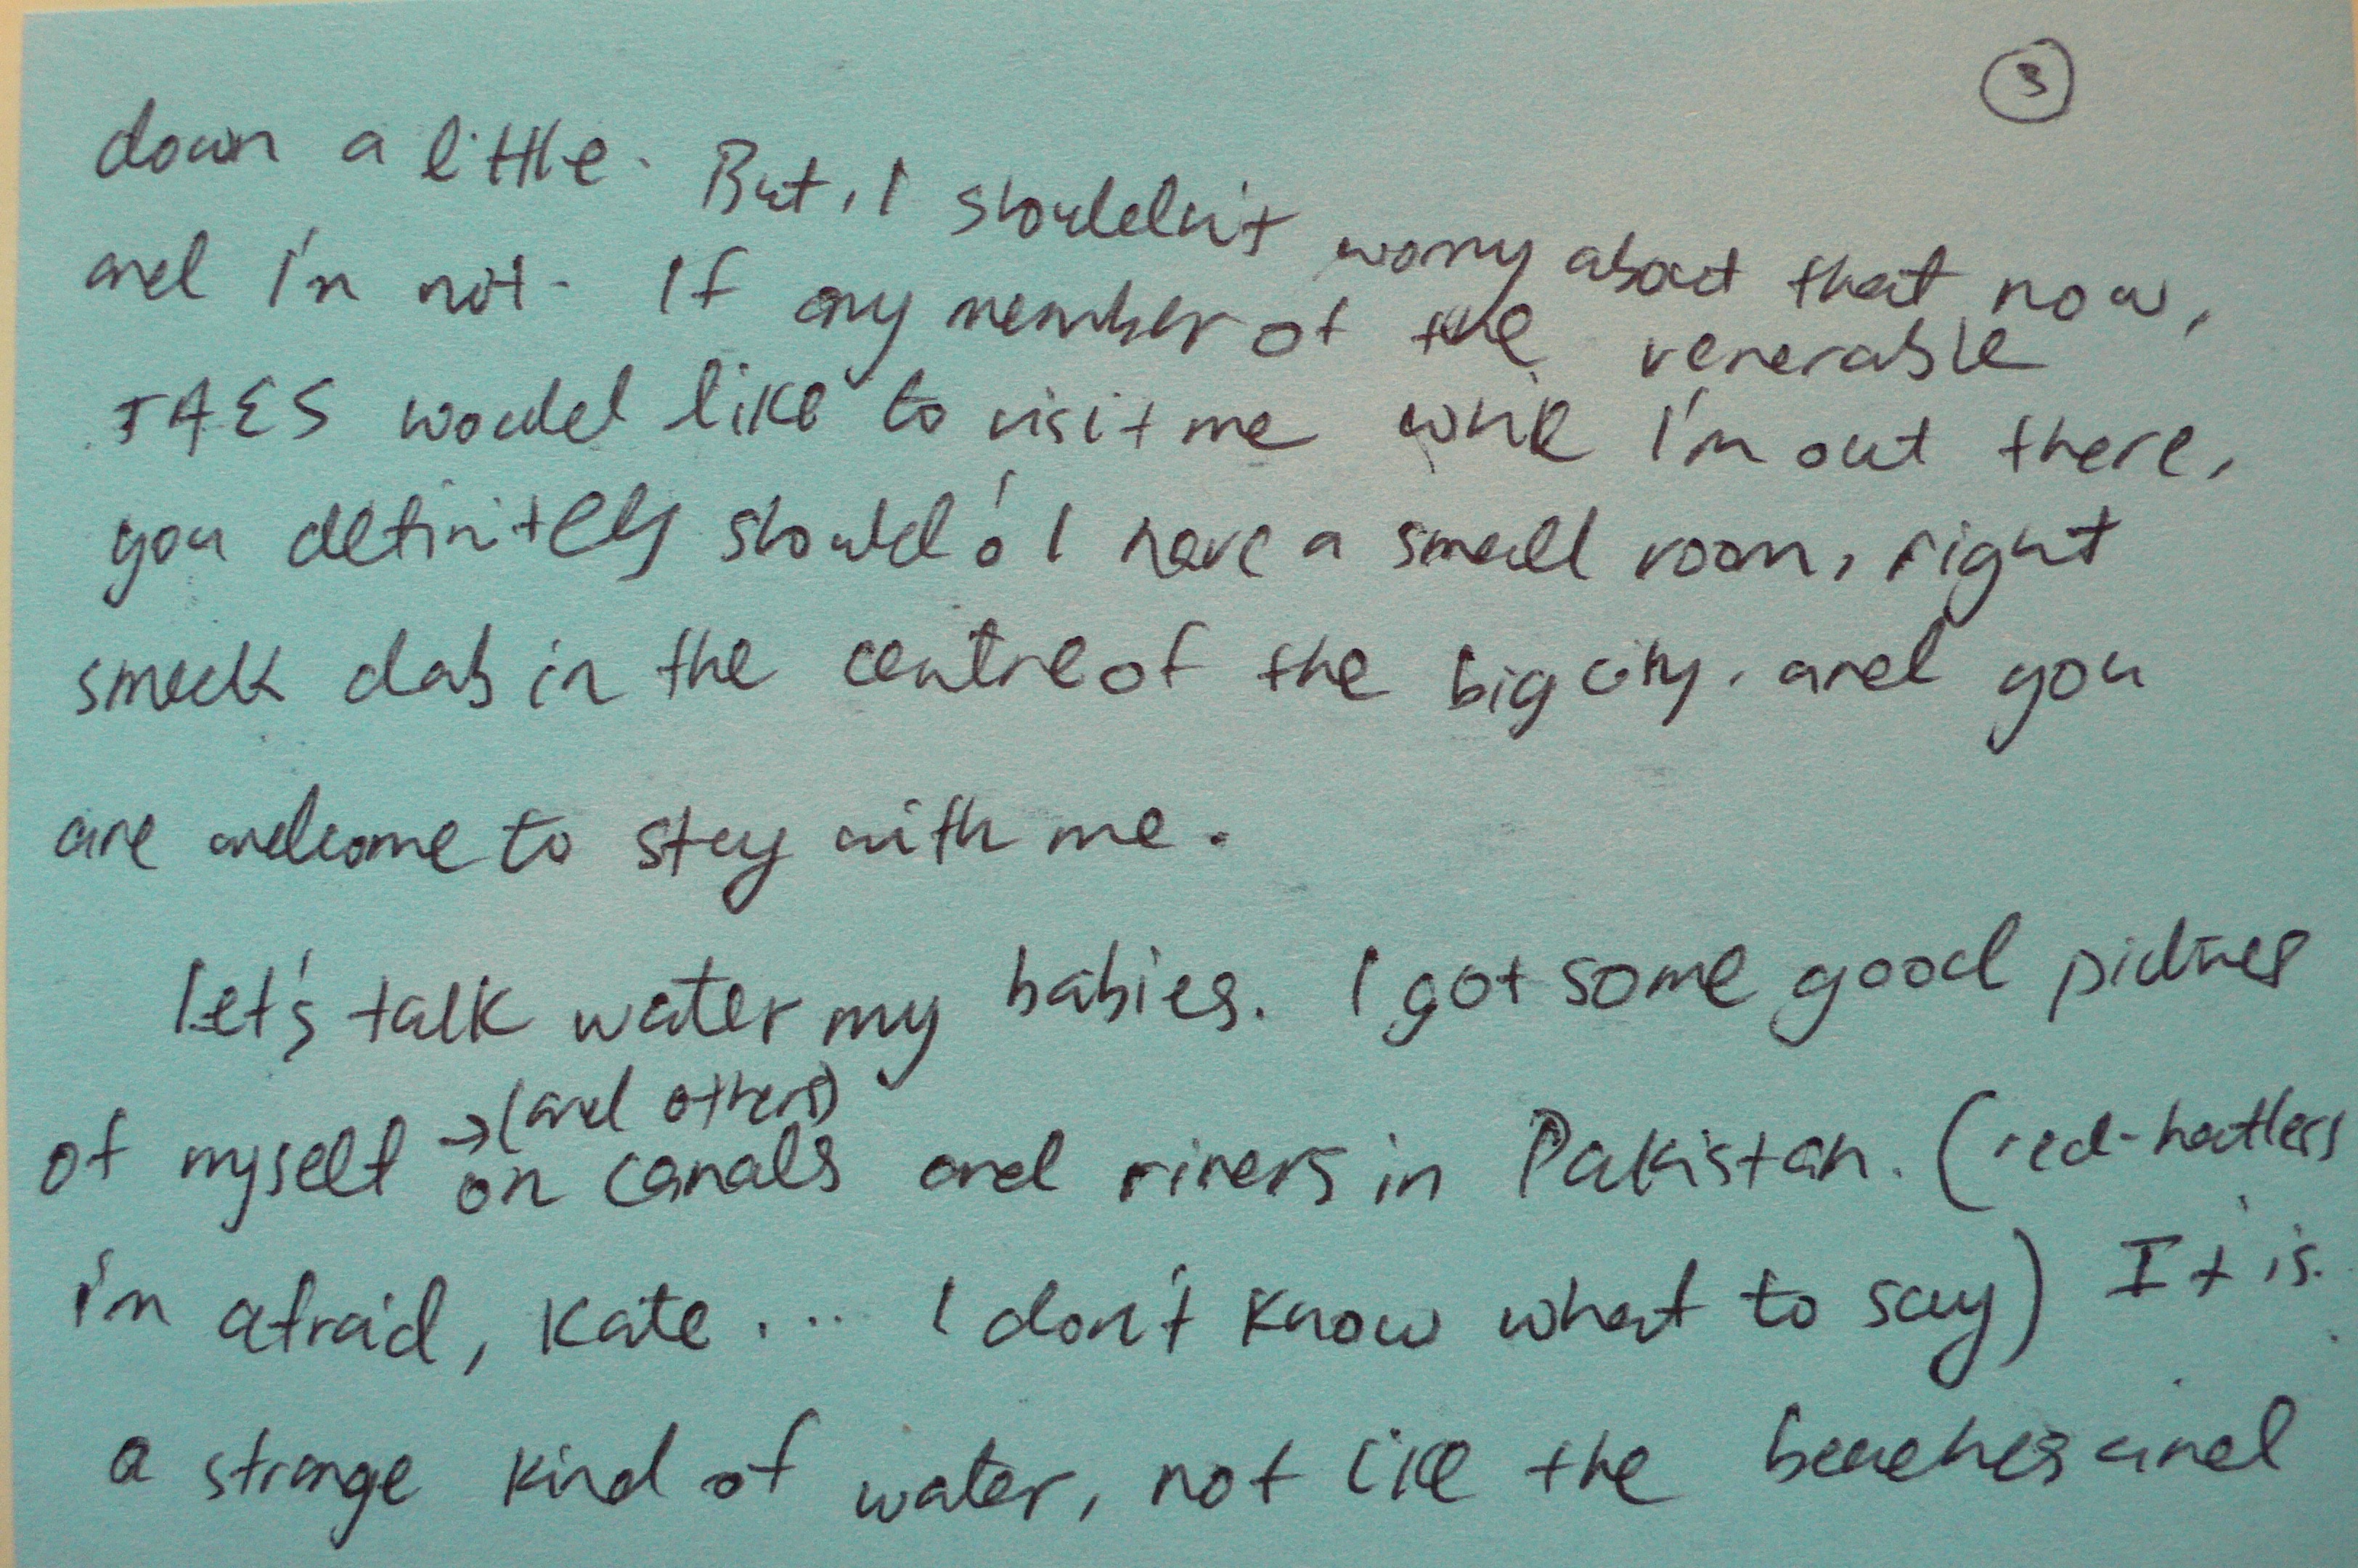 3
down a little. But, I shouldn't worry about that now,
and I'm not. If any member of the venerable
JAES would like to visit me while I'm out there,
you definitely should! I have a small room, right
smack dab in the centre of the big city. and you
are welcome to stay with me.
Let's talk water my babies. I got some good pictures
(and others)
of myself → on canals and rivers in Pakistan. (red-hatlers
I'm afraid, Kate.... I don't know what to say) It is
a strange kind of water, not like the beaches and